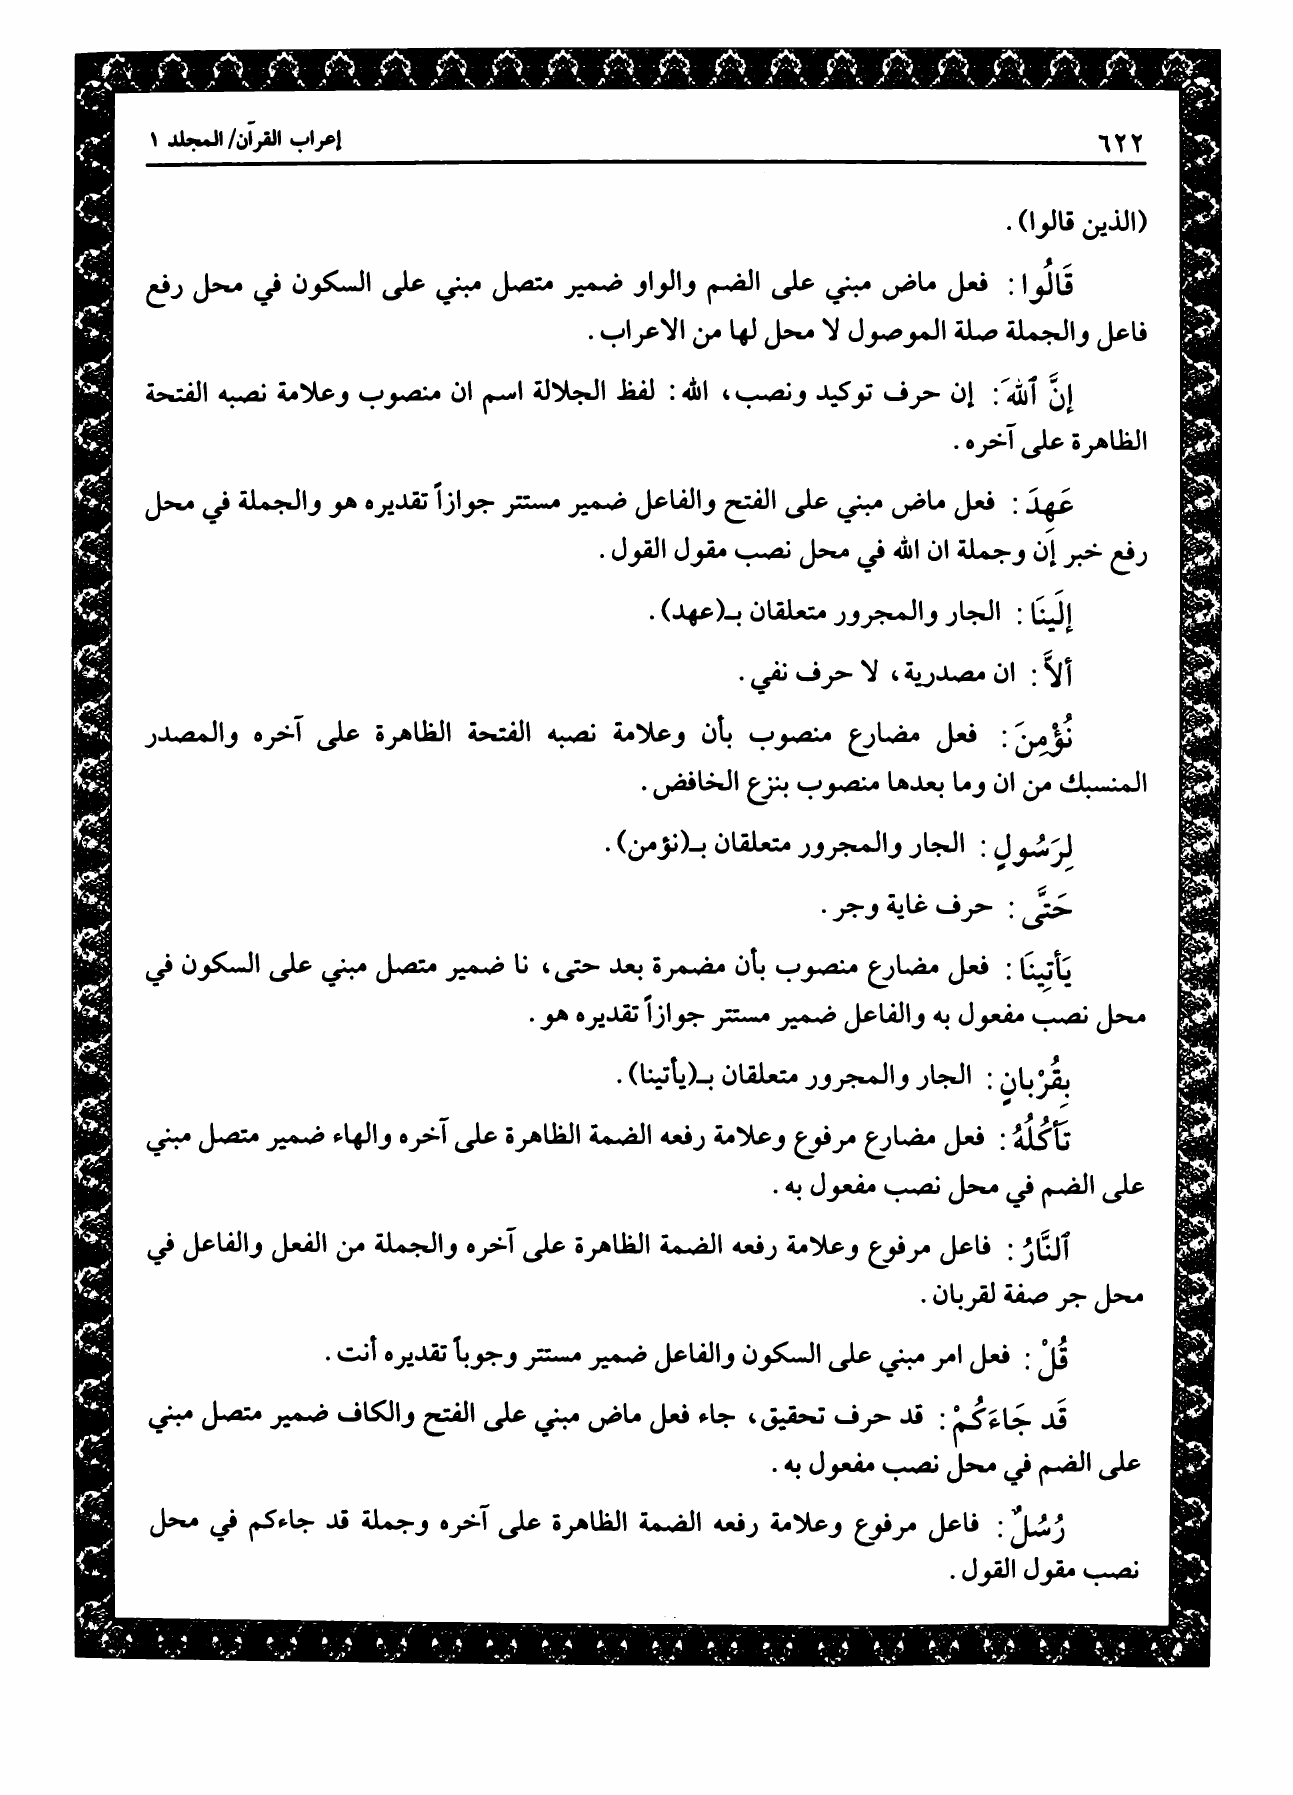 ٦٢٢
إعراب القرآن/ المجلد ١
(الذين قالوا).
قَالُوا: فعل ماض مبني على الضم والواو ضمير متصل مبني على السكون في محل رفع
فاعل والجملة صلة الموصول لا محل لها من الاعراب.
إنَّ ٱللهَ: إن حرف توكيد ونصب، الله: لفظ الجلالة اسم ان منصوب وعلامة نصبه الفتحة
الظاهرة على آخره.
عَهِدَ: فعل ماض مبني على الفتح والفاعل ضمير مستتر جوازاً تقديره هو والجملة في محل
رفع خبر إن وجملة ان الله في محل نصب مقول القول.
إلَينَا: الجار والمجرور متعلقان بـ(عهد).
ألاَّ: ان مصدرية، لا حرف نفي.
نُؤْمِنَ: فعل مضارع منصوب بأن وعلامة نصبه الفتحة الظاهرة على آخره والمصدر
المنسبك من ان وما بعدها منصوب بنزع الخافض.
لِرَسُولٍ: الجار والمجرور متعلقان بـ(نؤمن).
حَتَّى: حرف غاية وجر.
يَأتِينَا: فعل مضارع منصوب بأن مضمرة بعد حتى، نا ضمير متصل مبني على السكون في
محل نصب مفعول به والفاعل ضمير مستتر جوازاً تقديره هو.
بِقُرْبانٍ: الجار والمجرور متعلقان بـ(يأتينا).
تَأكُلُهُ: فعل مضارع مرفوع وعلامة رفعه الضمة الظاهرة على آخره والهاء ضمير متصل مبني
على الضم في محل نصب مفعول به.
ٱلنَّارُ: فاعل مرفوع وعلامة رفعه الضمة الظاهرة على آخره والجملة من الفعل والفاعل في
محل جر صفة لقربان.
قُلْ: فعل امر مبني على السكون والفاعل ضمير مستتر وجوباً تقديره أنت.
قَد جَاءَكُمْ: قد حرف تحقيق، جاء فعل ماض مبني على الفتح والكاف ضمير متصل مبني
على الضم في محل نصب مفعول به.
رُسُلٌ: فاعل مرفوع وعلامة رفعه الضمة الظاهرة على آخره وجملة قد جاءكم في محل
نصب مقول القول.